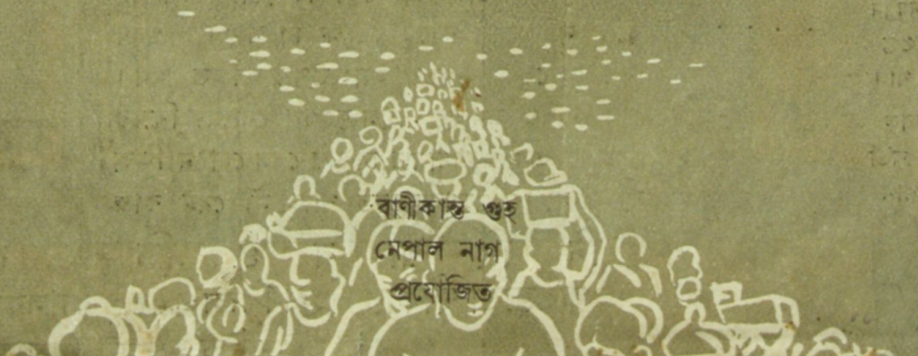 বাণীকান্ত গুহ
নেপাল নাগ
প্রযোজিত